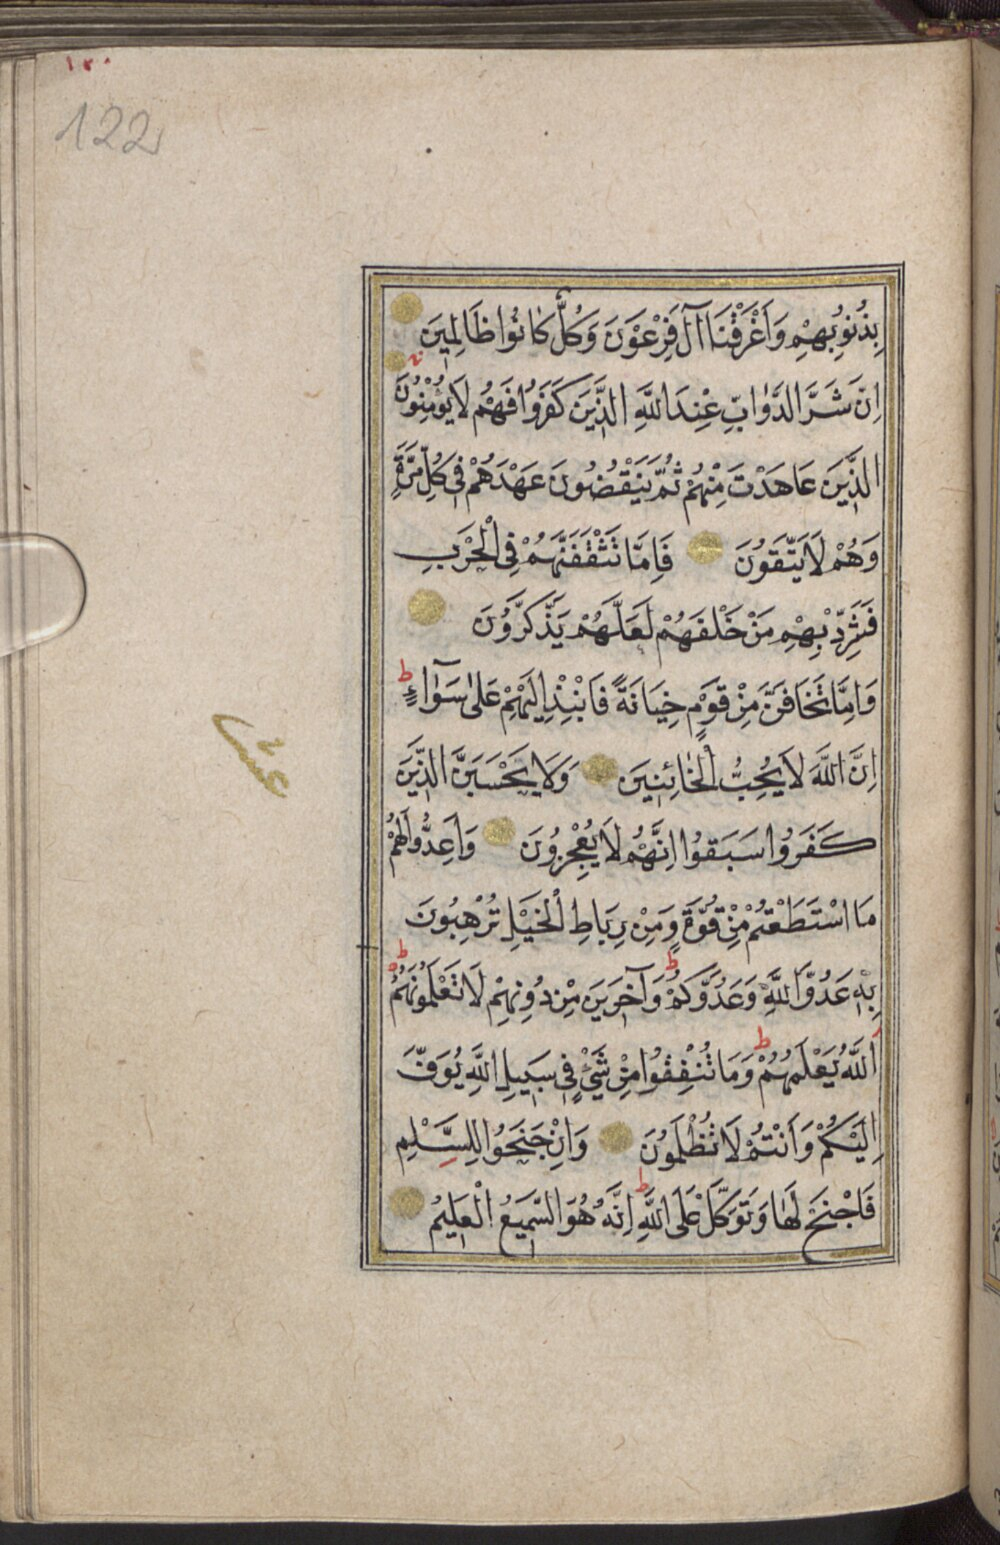 ١٢٠
122
بِذُنُوبِهِمْ وَاَغْرَقْنَا اٰلَ فِرْعَوْنَ وَكُلٌّ كَانُوا ظَالِمِينَ
اِنَّ شَرَّ الدَّوَٰابِّ عِنْدَ اللَّهِ الَّذِينَ كَفَرُوا فَهُمْ لَا يُؤْمِنُونَ
الَّذِينَ عَاهَدْتَ مِنْهُمْ ثُمَّ يَنْقُضُونَ عَهْدَهُمْ فِي كُلِّ مَرَّةٍ
وَهُمْ لَا يَتَّقُونَ فَاِمَّا تَثْقَفَنَّهُمْ فِي الْحَرْبِ
فَشَرِّدْ بِهِمْ مَنْ خَلْفَهُمْ لَعَلَّهُمْ يَذَّكَّرُونَ
وَاِمَّا تَخَافَنَّ مِنْ قَوْمٍ خِيَانَةً فَانْبِذْ اِلَيْهِمْ عَلٰى سَوَٰٓاءٍ ط
اِنَّ اللَّهَ لَا يُحِبُّ الْخَٰائِنِينَ وَلَا يَحْسَبَنَّ الَّذِينَ
عشر
كَفَرُوا سَبَقُوا اِنَّهُمْ لَا يُعْجِزُونَ وَاَعِدُّوا لَهُمْ
مَا اسْتَطَعْتُمْ مِنْ قُوَّةٍ وَمِنْ رِبَاطِ الْخَيْلِ تُرْهِبُونَ
بِهِ عَدُوَّ اللَّهِ وَعَدُوَّكُمْ ط وَآخَرِينَ مِنْ دُونِهِمْ لَا تَعْلَمُونَهُمْ ط
اَللَّهُ يَعْلَمُهُمْ ط وَمَا تُنْفِقُوا مِنْ شَيْءٍ فِي سَبِيلِ اللَّهِ يُوَفَّ
اِلَيْكُمْ وَاَنْتُمْ لَا تُظْلَمُونَ وَاِنْ جَنَحُوا لِلسَّلْمِ
فَاجْنَحْ لَهَا وَتَوَكَّلْ عَلَى اللَّهِ ط اِنَّهُ هُوَ السَّمِيعُ الْعَلِيمُ